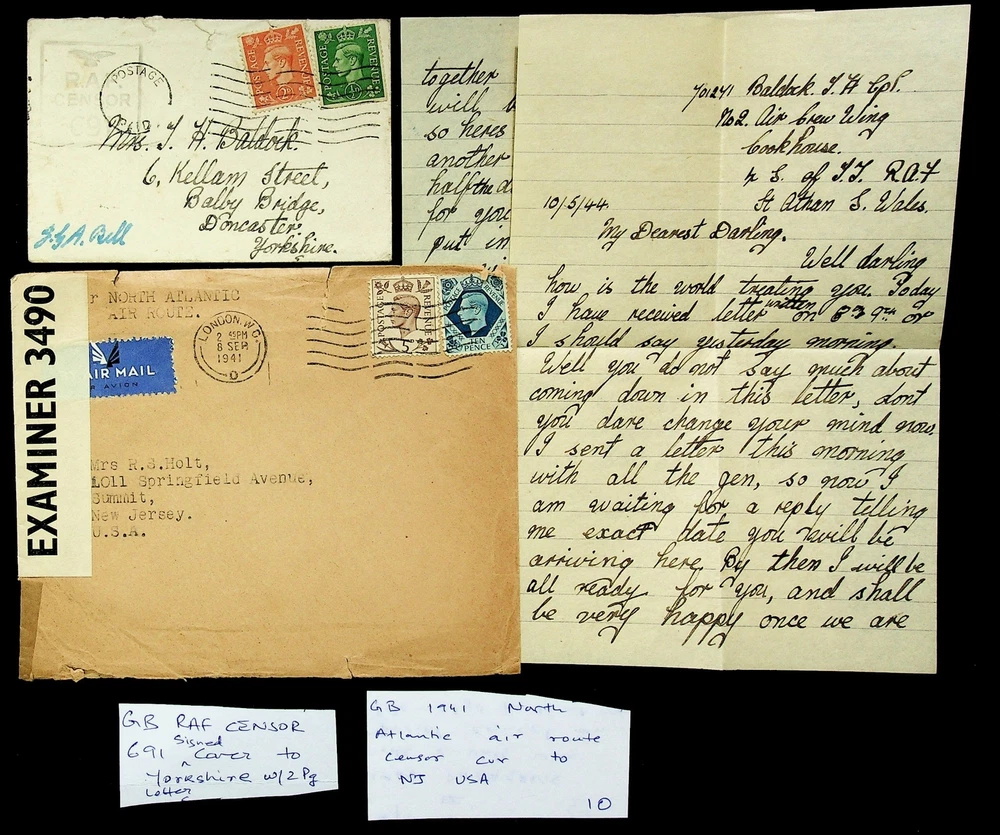 RAF
CENSOR
POSTAGE
PAID
POSTAGE REVENUE
POSTAGE REVENUE
Mrs. J. H. Baldock.
6, Kellam Street,
Balby Bridge,
Doncaster,
Yorkshire.
J.G.A. Bell
together
will b
so heres
another
half the d
for you
put in
701241 Baldock. J. H Cpl.
No2. Air Crew Wing
Cookhouse.
S. of T.T. R.A.F
St Athan S. Wales.
10/5/44.
My Dearest Darling.
Well darling
how is the world treating you. Today
I have received letter written on 8th 9th or
I should say yesterday morning.
Well you do not say much about
coming down in this letter, dont
you dare change your mind now.
I sent a letter this morning
with all the gen, so now I
am waiting for a reply telling
me exact date you will be
arriving here. By then I will be
all ready for you, and shall
be very happy once we are
EXAMINER 3490
r NORTH ATLANTIC
AIR ROUTE.
LONDON. W.C.
2 45PM
8 SEP
1941
D
AIR MAIL
R AVION
POSTAGE REVENUE
5D
TEN
PENCE
Mrs R.S.Holt,
1011 Springfield Avenue,
Summit,
New Jersey.
U.S.A.
GB RAF CENSOR
691 Signed Cover to
Yorkshire w/2 Pg
Letter
GB 1941 North
Atlantic air route
censor cvr to
NJ USA
10